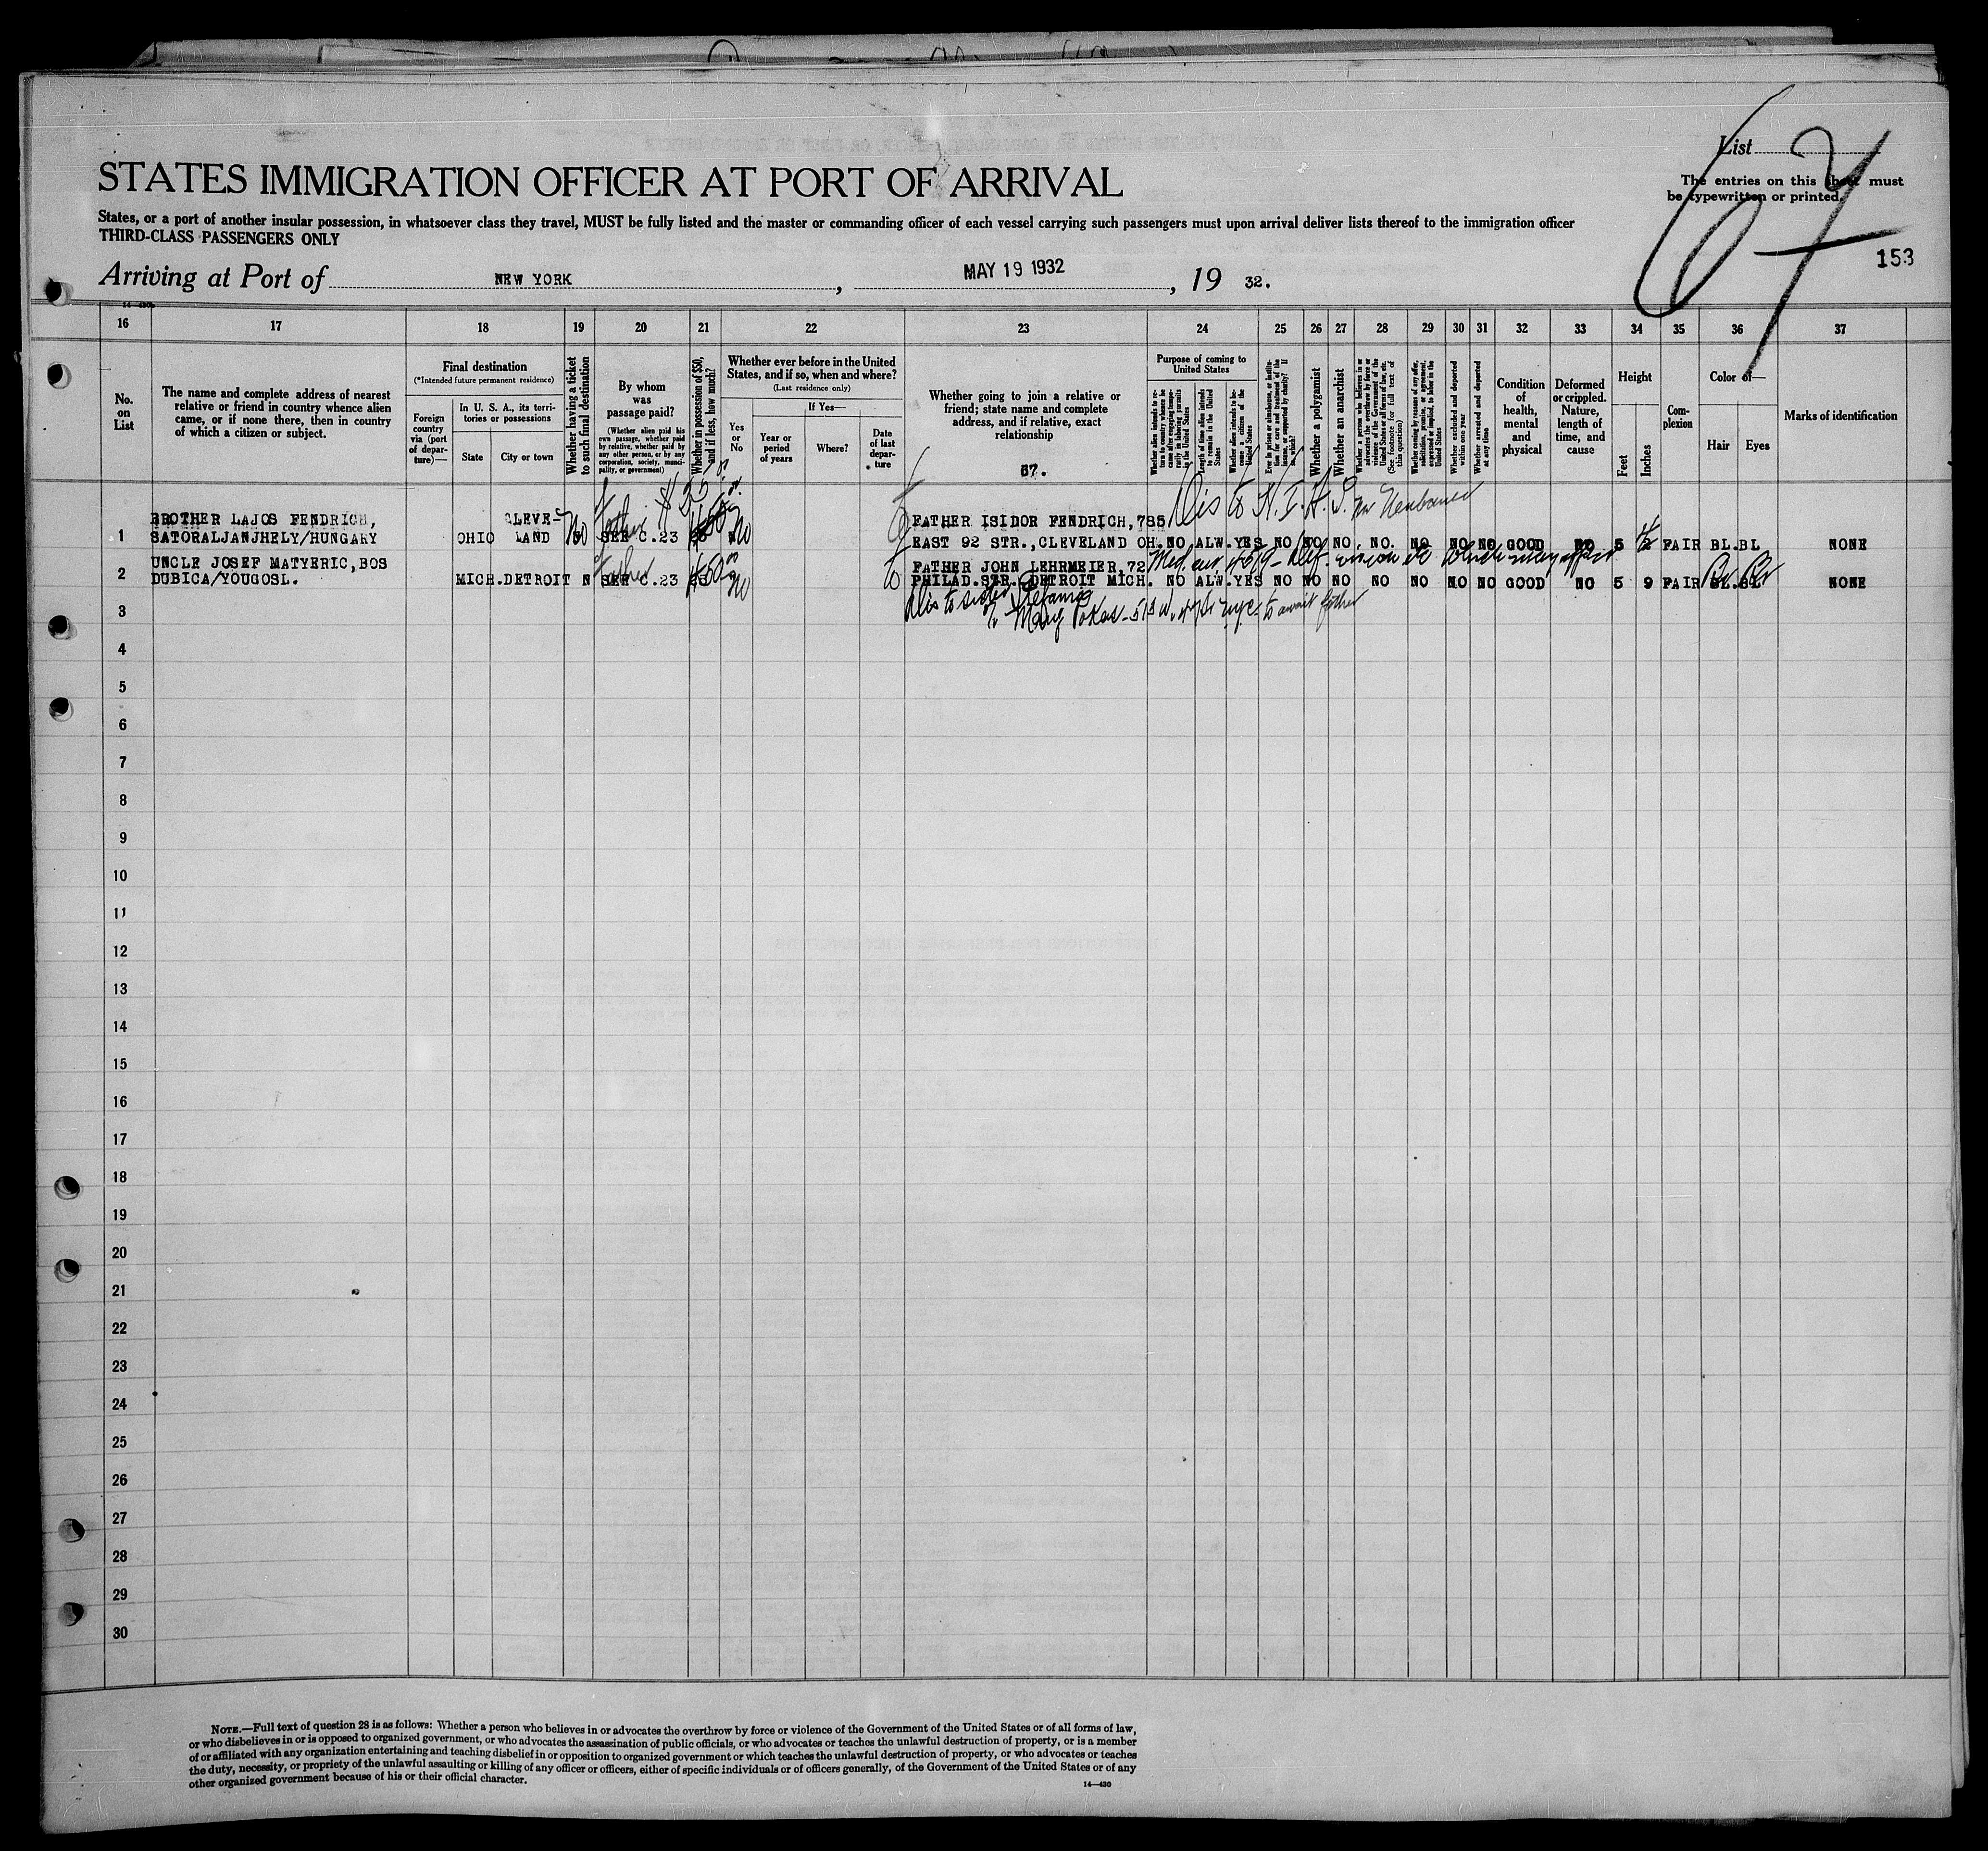 List
67
The entries on this sheet must
be typewritten or printed.
153
STATES IMMIGRATION OFFICER AT PORT OF ARRIVAL
States, or a port of another insular possession, in whatsoever class they travel, MUST be fully listed and the master or commanding officer of each vessel carrying such passengers must upon arrival deliver lists thereof to the immigration officer
THIRD-CLASS PASSENGERS ONLY
Arriving at Port of NEW YORK, MAY 19 1932, 19 32.
14-430b
16 17 18 19 20 21 22 23 24 25 26 27 28 29 30 31 32 33 34 35 36 37
No.
on
List
The name and complete address of nearest
relative or friend in country whence alien
came, or if none there, then in country
of which a citizen or subject.
Final destination
(*Intended future permanent residence)
Foreign
country
via (port
of depar-
ture)—
In U. S. A., its terri-
tories or possessions
State
City or town
Whether having a ticket
to such final destination
By whom
was
passage paid?
(Whether alien paid his
own passage, whether paid
by relative, whether paid by
any other person, or by any
corporation, society, munici-
pality, or government)
Whether in possession of $50,
and if less, how much?
Whether ever before in the United
States, and if so, when and where?
(Last residence only)
Yes
or
No
If Yes—
Year or
period
of years
Where?
Date
of last
depar-
ture
Whether going to join a relative or
friend; state name and complete
address, and if relative, exact
relationship
67.
Purpose of coming to
United States
Whether alien intends to re-
turn to country whence he
came after engaging tempo-
rarily in laboring pursuits
in the United States
Length of time alien intends
to remain in the United
States
Whether alien intends to be-
come a citizen of the
United States
Ever in prison or almshouse, or institu-
tion for care and treatment of the
insane, or supported by charity? If
so, which?
Whether a polygamist
Whether an anarchist
Whether a person who believes in or
advocates the overthrow by force or
violence of the Government of the
United States or all forms of law, etc.
(See footnote for full text of
this question)
Whether coming by reason of any offer,
solicitation, promise, or agreement,
expressed or implied, to labor in the
United States
Whether excluded and deported
within one year
Whether arrested and deported
at any time
Condition
of
health,
mental
and
physical
Deformed
or crippled.
Nature,
length of
time, and
cause
Height
Feet
Inches
Com-
plexion
Color of—
Hair
Eyes
Marks of identification
Dis to H.I.A.S.
BROTHER LAJOS FENDRICH, CLEVE- Father $25 FATHER ISIDOR FENDRICH, 785
1 SATORALJANJHELY/HUNGARY OHIO LAND No SEE C.23 No EAST 92 STR., CLEVELAND OH. NO ALW. YES NO NO NO NO. NO NO NO GOOD NO 5 2 FAIR BL. BL NONE
UNCLE JOSEF MATYERIC, BOS Father $50 FATHER JOHN LEHRMEIER, 72 Med. cert.
2 DUBICA/YOUGOSL. MICH. DETROIT N SEE C.23 No PHILAD. STR. DETROIT MICH. NO ALW. YES NO NO NO NO NO NO NO GOOD NO 5 9 FAIR BL. BL NONE
Dis to sister Stefania
3 Mary to await father
4
5
6
7
8
9
10
11
12
13
14
15
16
17
18
19
20
21
22
23
24
25
26
27
28
29
30
NOTE.—Full text of question 28 is as follows: Whether a person who believes in or advocates the overthrow by force or violence of the Government of the United States or of all forms of law,
or who disbelieves in or is opposed to organized government, or who advocates the assassination of public officials, or who advocates or teaches the unlawful destruction of property, or is a member
of or affiliated with any organization entertaining and teaching disbelief in or opposition to organized government or which teaches the unlawful destruction of property, or who advocates or teaches
the duty, necessity, or propriety of the unlawful assaulting or killing of any officer or officers, either of specific individuals or of officers generally, of the Government of the United States or of any
other organized government because of his or their official character.
14—430